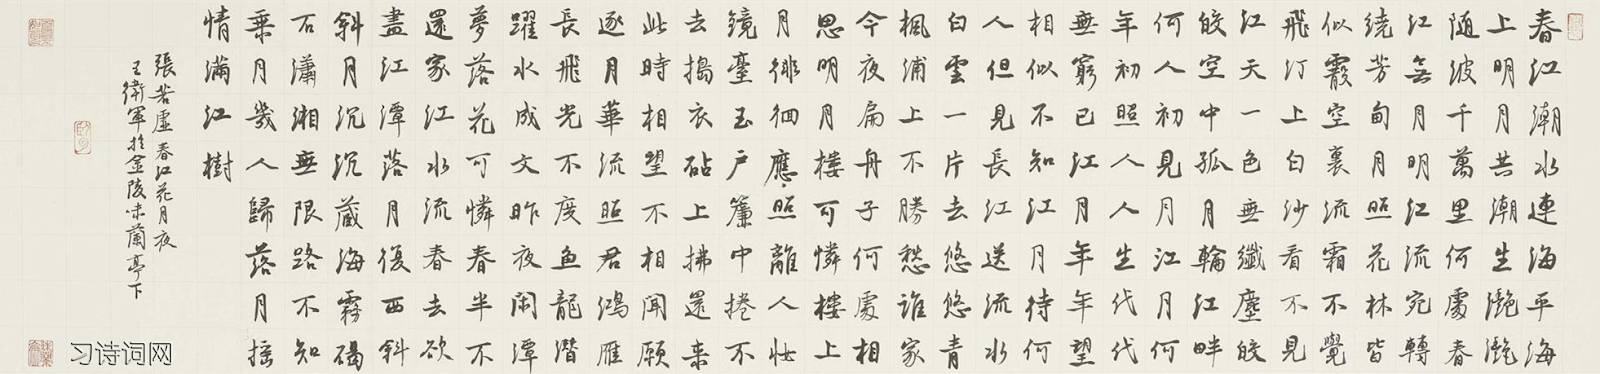 春江潮水連海平海
上明月共潮生灔灔
随波千萬里何處春
江無月明江流宛轉
繞芳甸月照花林皆
似霰空裏流霜不覺
飛汀上白沙看不見
江天一色無纖塵皎
皎空中孤月輪江畔
何人初見月江月何
年初照人人生代代
無窮已江月年年望
相似不知江月待何
人但見長江送流水
白雲一片去悠悠青
楓浦上不勝愁誰家
今夜扁舟子何處相
思明月樓可憐樓上
月徘徊應照離人妝
鏡臺玉户簾中捲不
去搗衣砧上拂還來
此時相望不相聞願
逐月華流照君鴻雁
長飛光不度魚龍潛
躍水成文昨夜閑潭
夢落花可憐春半不
還家江水流春去欲
盡江潭落月復西斜
斜月沉沉藏海霧碣
石瀟湘無限路不知
乘月幾人歸落月摇
情滿江樹
張若虛春江花月夜
王衛軍於金陵味蘭亭下
习诗词网